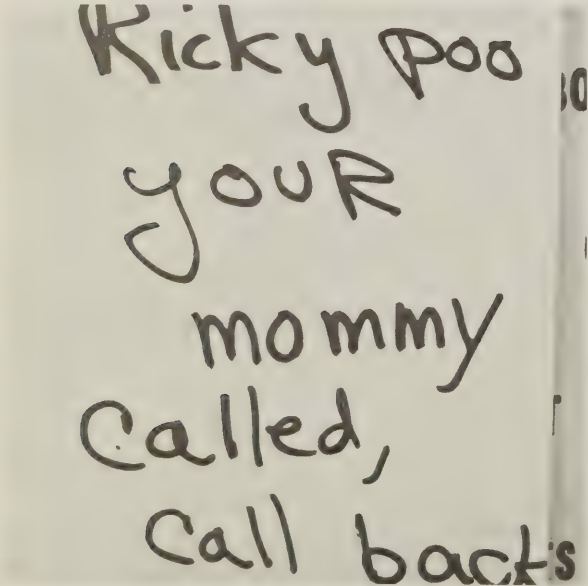 Ricky poo
your
mommy
Called,
Call back